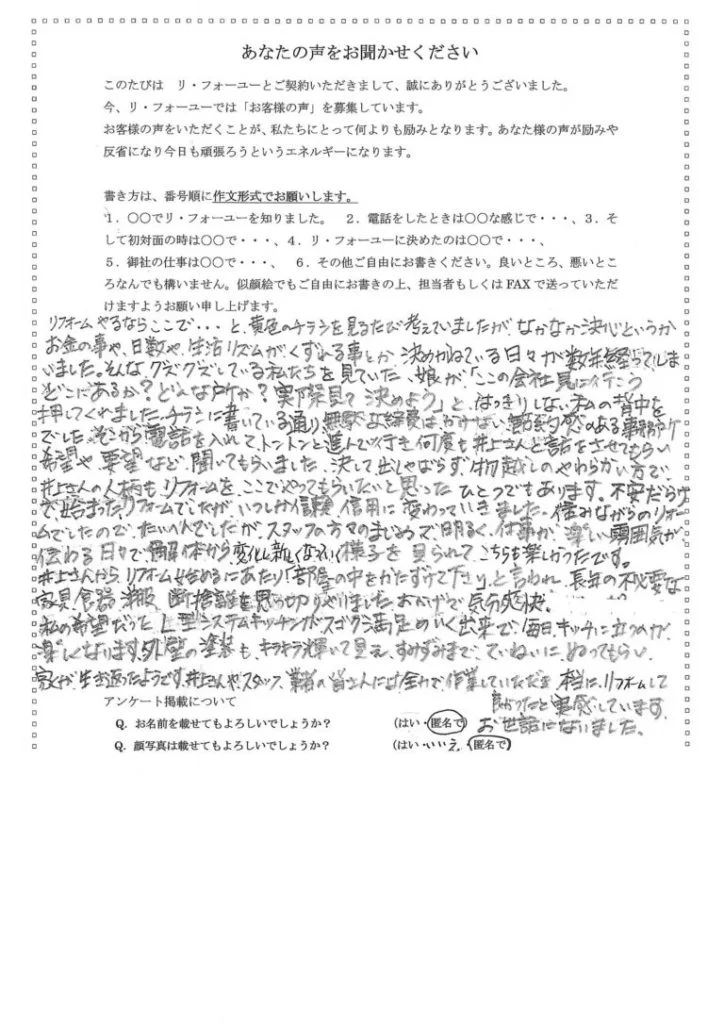 あなたの声をお聞かせください
このたびは　リ・フォーユーとご契約いただきまして、誠にありがとうございました。
今、リ・フォーユーでは「お客様の声」を募集しています。
お客様の声をいただくことが、私たちにとって何よりも励みとなります。あなた様の声が励みや
反省になり今日も頑張ろうというエネルギーになります。
書き方は、番号順に作文形式でお願いします。
1．〇〇でリ・フォーユーを知りました。　2．電話をしたときは〇〇な感じで・・・、3．そ
して初対面の時は〇〇で・・・、4．リ・フォーユーに決めたのは〇〇で・・・、
5．御社の仕事は〇〇で・・・、　6．その他ご自由にお書きください。良いところ、悪いとこ
ろなんでも構いません。似顔絵でもご自由にお書きの上、担当者もしくは FAX で送っていただ
けますようお願い申し上げます。
リフォームやるならここで・・・と、黄色のチラシを見るたび考えていましたが、なかなか決心というか
お金の事や、日数や、生活リズムがくずれる事とか 決めかねている日々が数年経ってしま
いました。そんなグズグズしている私たちを見ていた、娘が、「この会社見に行こう
どこにあるか？どんな戸ケか？実際見て決めよう」と、はっきりしない私の背中を
押してくれました。チラシに書いている通り 無駄な経費はかけない、節約感のある事務所
でした。それから電話を入れて、トントンと進んで行き 何度も井上さんと話をさせてもらい
希望や 要望など、聞いてもらいました。決して出しゃばらず、物越しのやわらかい方で、
井上さんの人柄も リフォームを、ここでやってもらいたいと思った ひとつでもあります。不安だらけ
で始まったリフォームでしたが、いつしか信頼 信用に変わっていきました。住みながらのリフォー
ムでしたので、たいへんでしたが スタッフの方々のまじめで、明るく、仕事が、楽しい雰囲気が
伝わる日々で、解体から変化し新しくなっていく様子を見られて こちらも楽しかったです。
井上さんから リフォーム始めるにあたり「部屋の中をかたずけて下さい」と言われ、長年の不必要な
家具 食器 洋服 断捨離を思い切りやりました。おかげで気分爽快。
私の希望だったL型システムキッチンがスゴク満足のいく出来で、毎日、キッチンに立つのが
楽しくなります。外壁の塗装も、キラキラ輝いて見え、すみずみまで、ていねいに ぬってもらい、
家が、生き返ったようです。井上さんやスタッフ、業者の皆さんには全力で、作業していただき、本当に、リフォームして
良かったと実感しています。
お世話になりました。
アンケート掲載について
Q. お名前を載せてもよろしいでしょうか？　（はい・匿名で）
Q. 顔写真は載せてもよろしいでしょうか？　（はい・いいえ、匿名で）